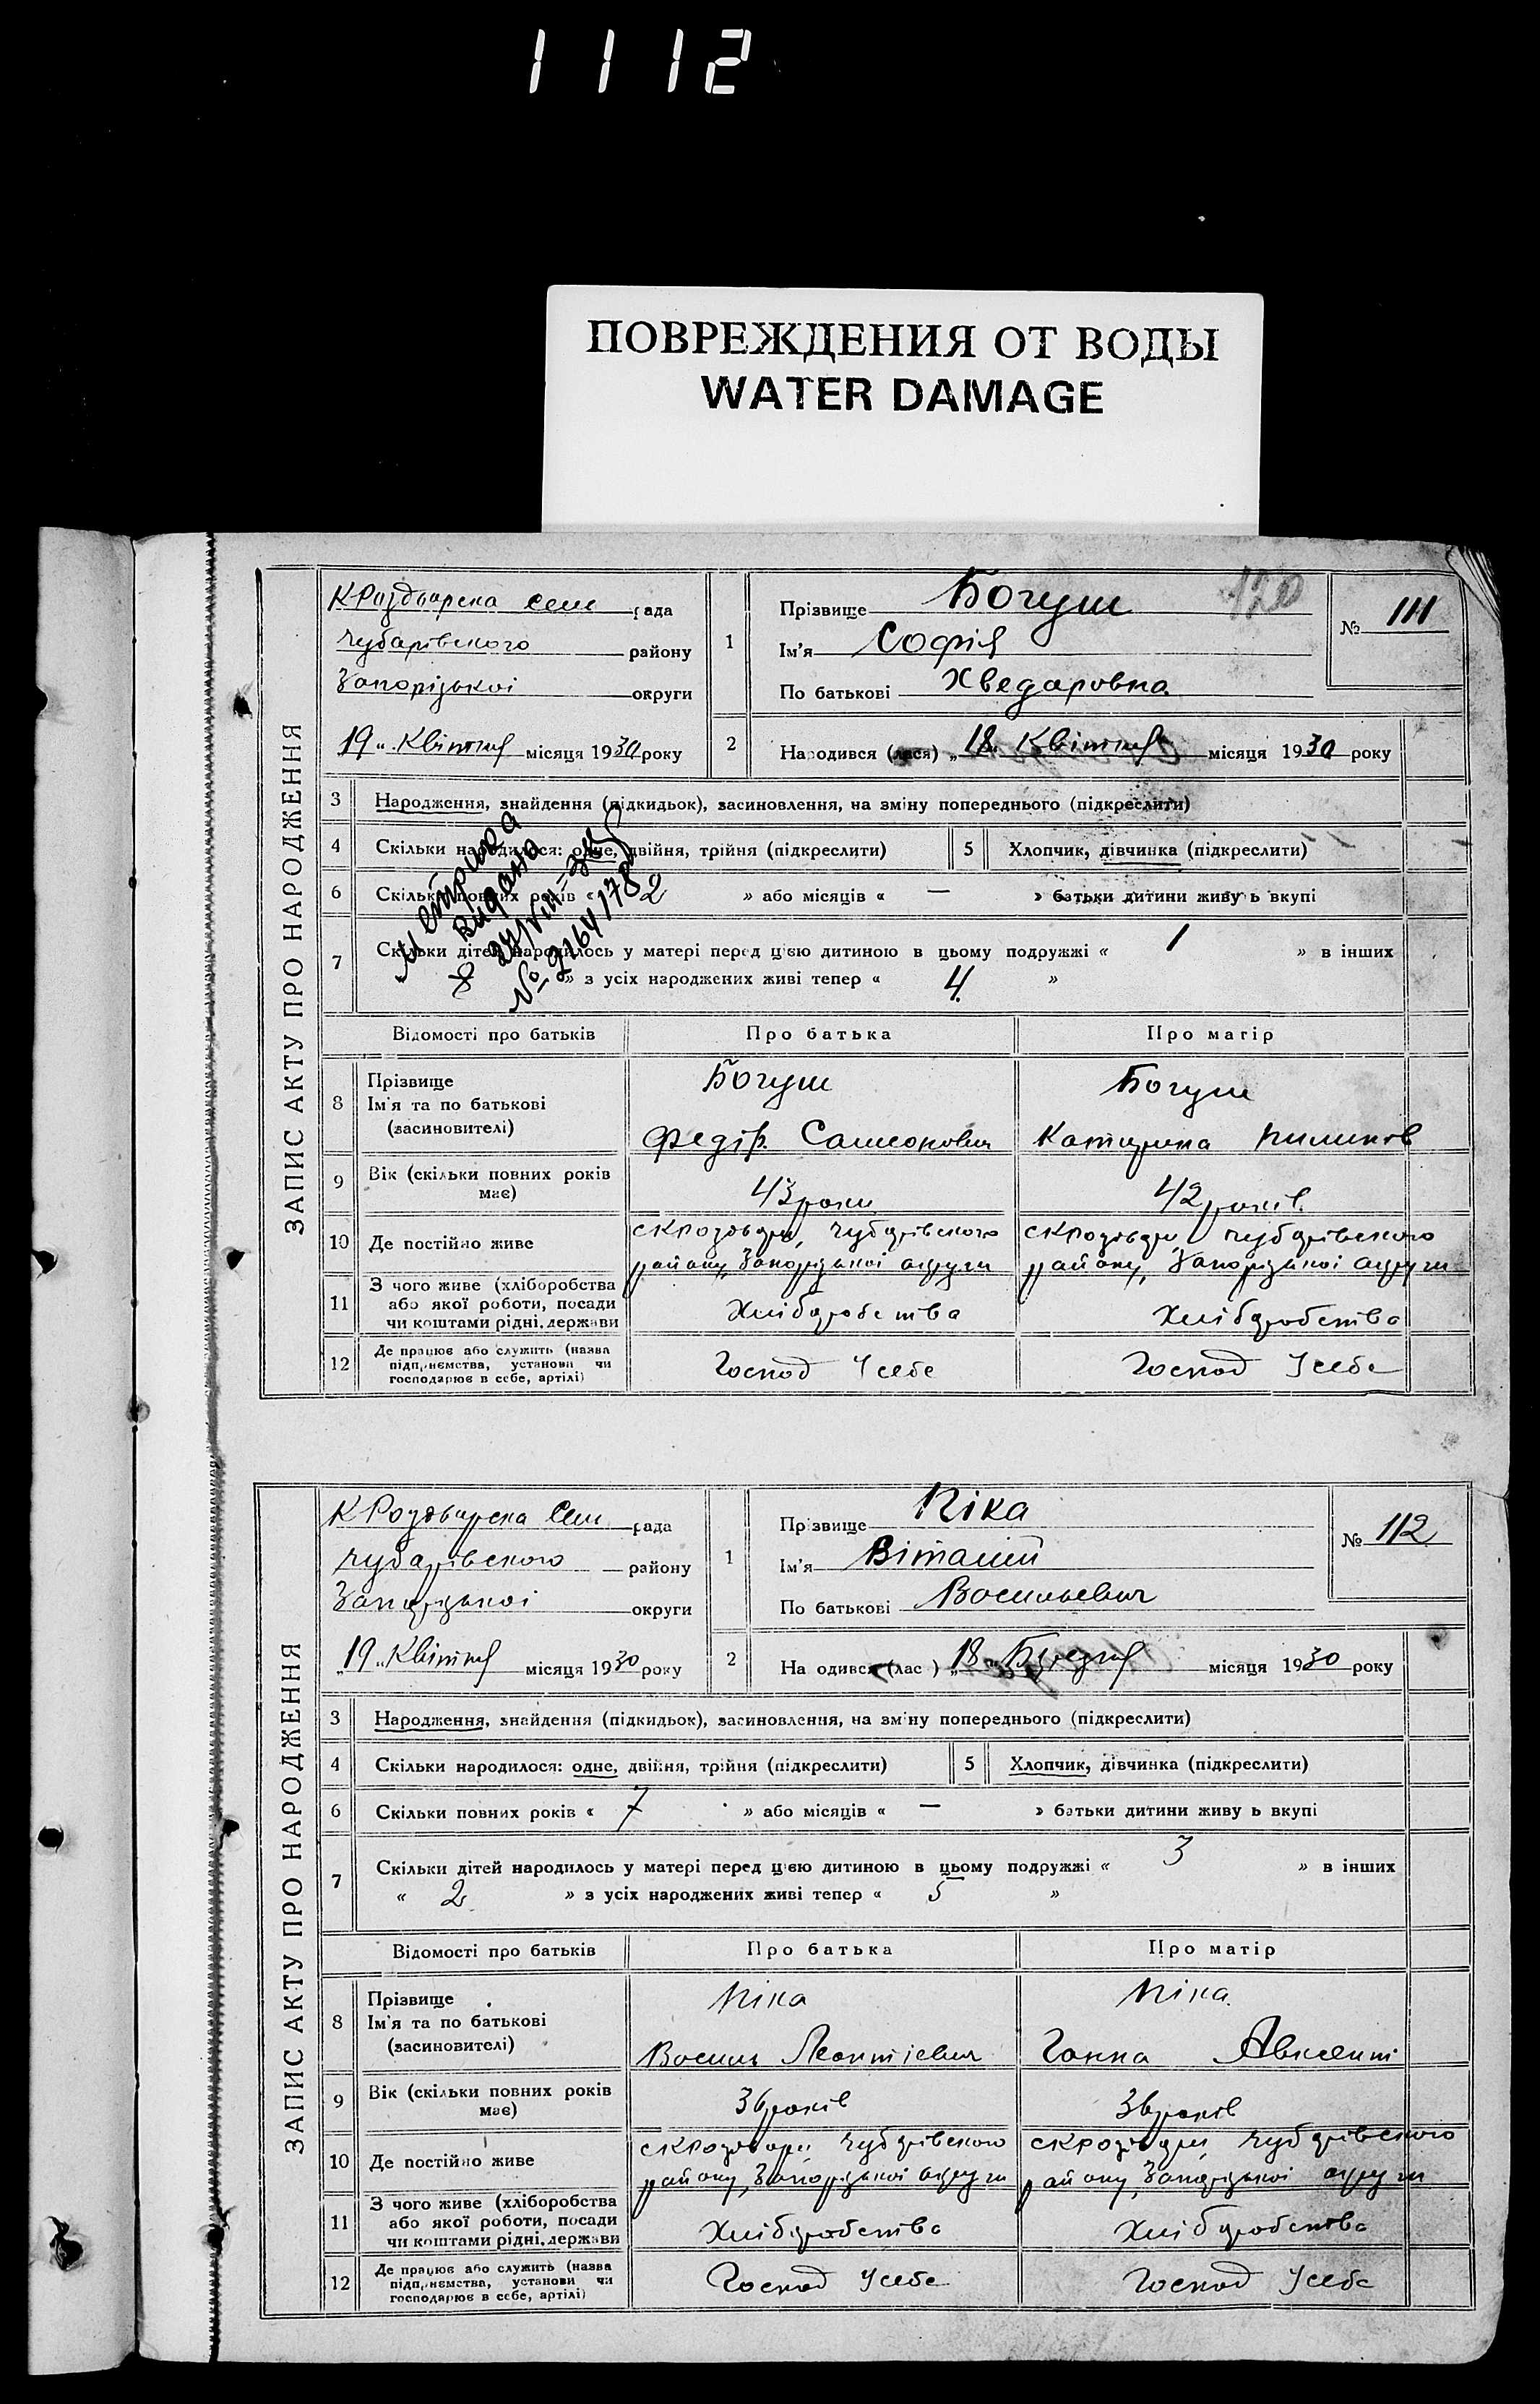 1112
ПОВРЕЖДЕНИЯ ОТ ВОДЫ
WATER DAMAGE
ЗАПИС АКТУ ПРО НАРОДЖЕННЯ
рада
Чубарівського району
Запорізької округи
„19„ Квітня місяця 1930 року
1
Прізвище Богуш
120
Ім'я Софія
По батькові Хведаровна
№ 111
2 Народився (лася) „18„ Квітня місяця 1930 року
3 Народження, знайдення (підкидьок), засиновлення, на зміну попереднього (підкреслити)
4 Скільки народилося: одне, двійня, трійня (підкреслити) 5 Хлопчик, дівчинка (підкреслити)
6 Скільки повних років « 2 » або місяців « — » батьки дитини живуть вкупі
7 Скільки дітей народилось у матері перед цією дитиною в цьому подружжі « 1 » в інших
» з усіх народжених живі тепер « 4 »
Метрика
видано
№
Відомості про батьків Про батька Про матір
8 Прізвище Богуш Богуш
Ім'я та по батькові
(засиновителі) Федір Самсонович Катирина
9 Вік (скільки повних років має) 43 роки 42 років
10 Де постійно живе Чубарівського Чубарівського
району, Запорізької округи району, Запорізької округи
11 З чого живе (хліборобства
або якої роботи, посади
чи коштами рідні, держави Хліборобства Хліборобства
12 Де працює або служить (назва
підприємства, установи чи
господарює в себе, артілі) Господ У себе Господ У себе
ЗАПИС АКТУ ПРО НАРОДЖЕННЯ
рада
Чубарівського району
Запорізької округи
„19„ Квітня місяця 1930 року
1
Прізвище Піка
Ім'я Віталій
По батькові Васильевич
№ 112
2 Народився (лас ) „18„ місяця 1930 року
3 Народження, знайдення (підкидьок), засиновлення, на зміну попереднього (підкреслити)
4 Скільки народилося: одне, двійня, трійня (підкреслити) 5 Хлопчик, дівчинка (підкреслити)
6 Скільки повних років « 7 » або місяців « — » батьки дитини живу ь вкупі
7 Скільки дітей народилось у матері перед цією дитиною в цьому подружжі « 3 » в інших
« 2 » з усіх народжених живі тепер « 5 »
Відомості про батьків Про батька Про матір
8 Прізвище Піка Піка
Ім'я та по батькові
(засиновителі) Василь Леонтіевич Ганна Авксент
9 Вік (скільки повних років має) 36 років 36 років
10 Де постійно живе Чубарівського Чубарівського
району, Запорізької округи району, Запорізької округи
11 З чого живе (хліборобства
або якої роботи, посади
чи коштами рідні, держави Хліборобства Хліборобства
12 Де працює або служить (назва
підприємства, установи чи
господарює в себе, артілі) Господ У себе Господ У себе